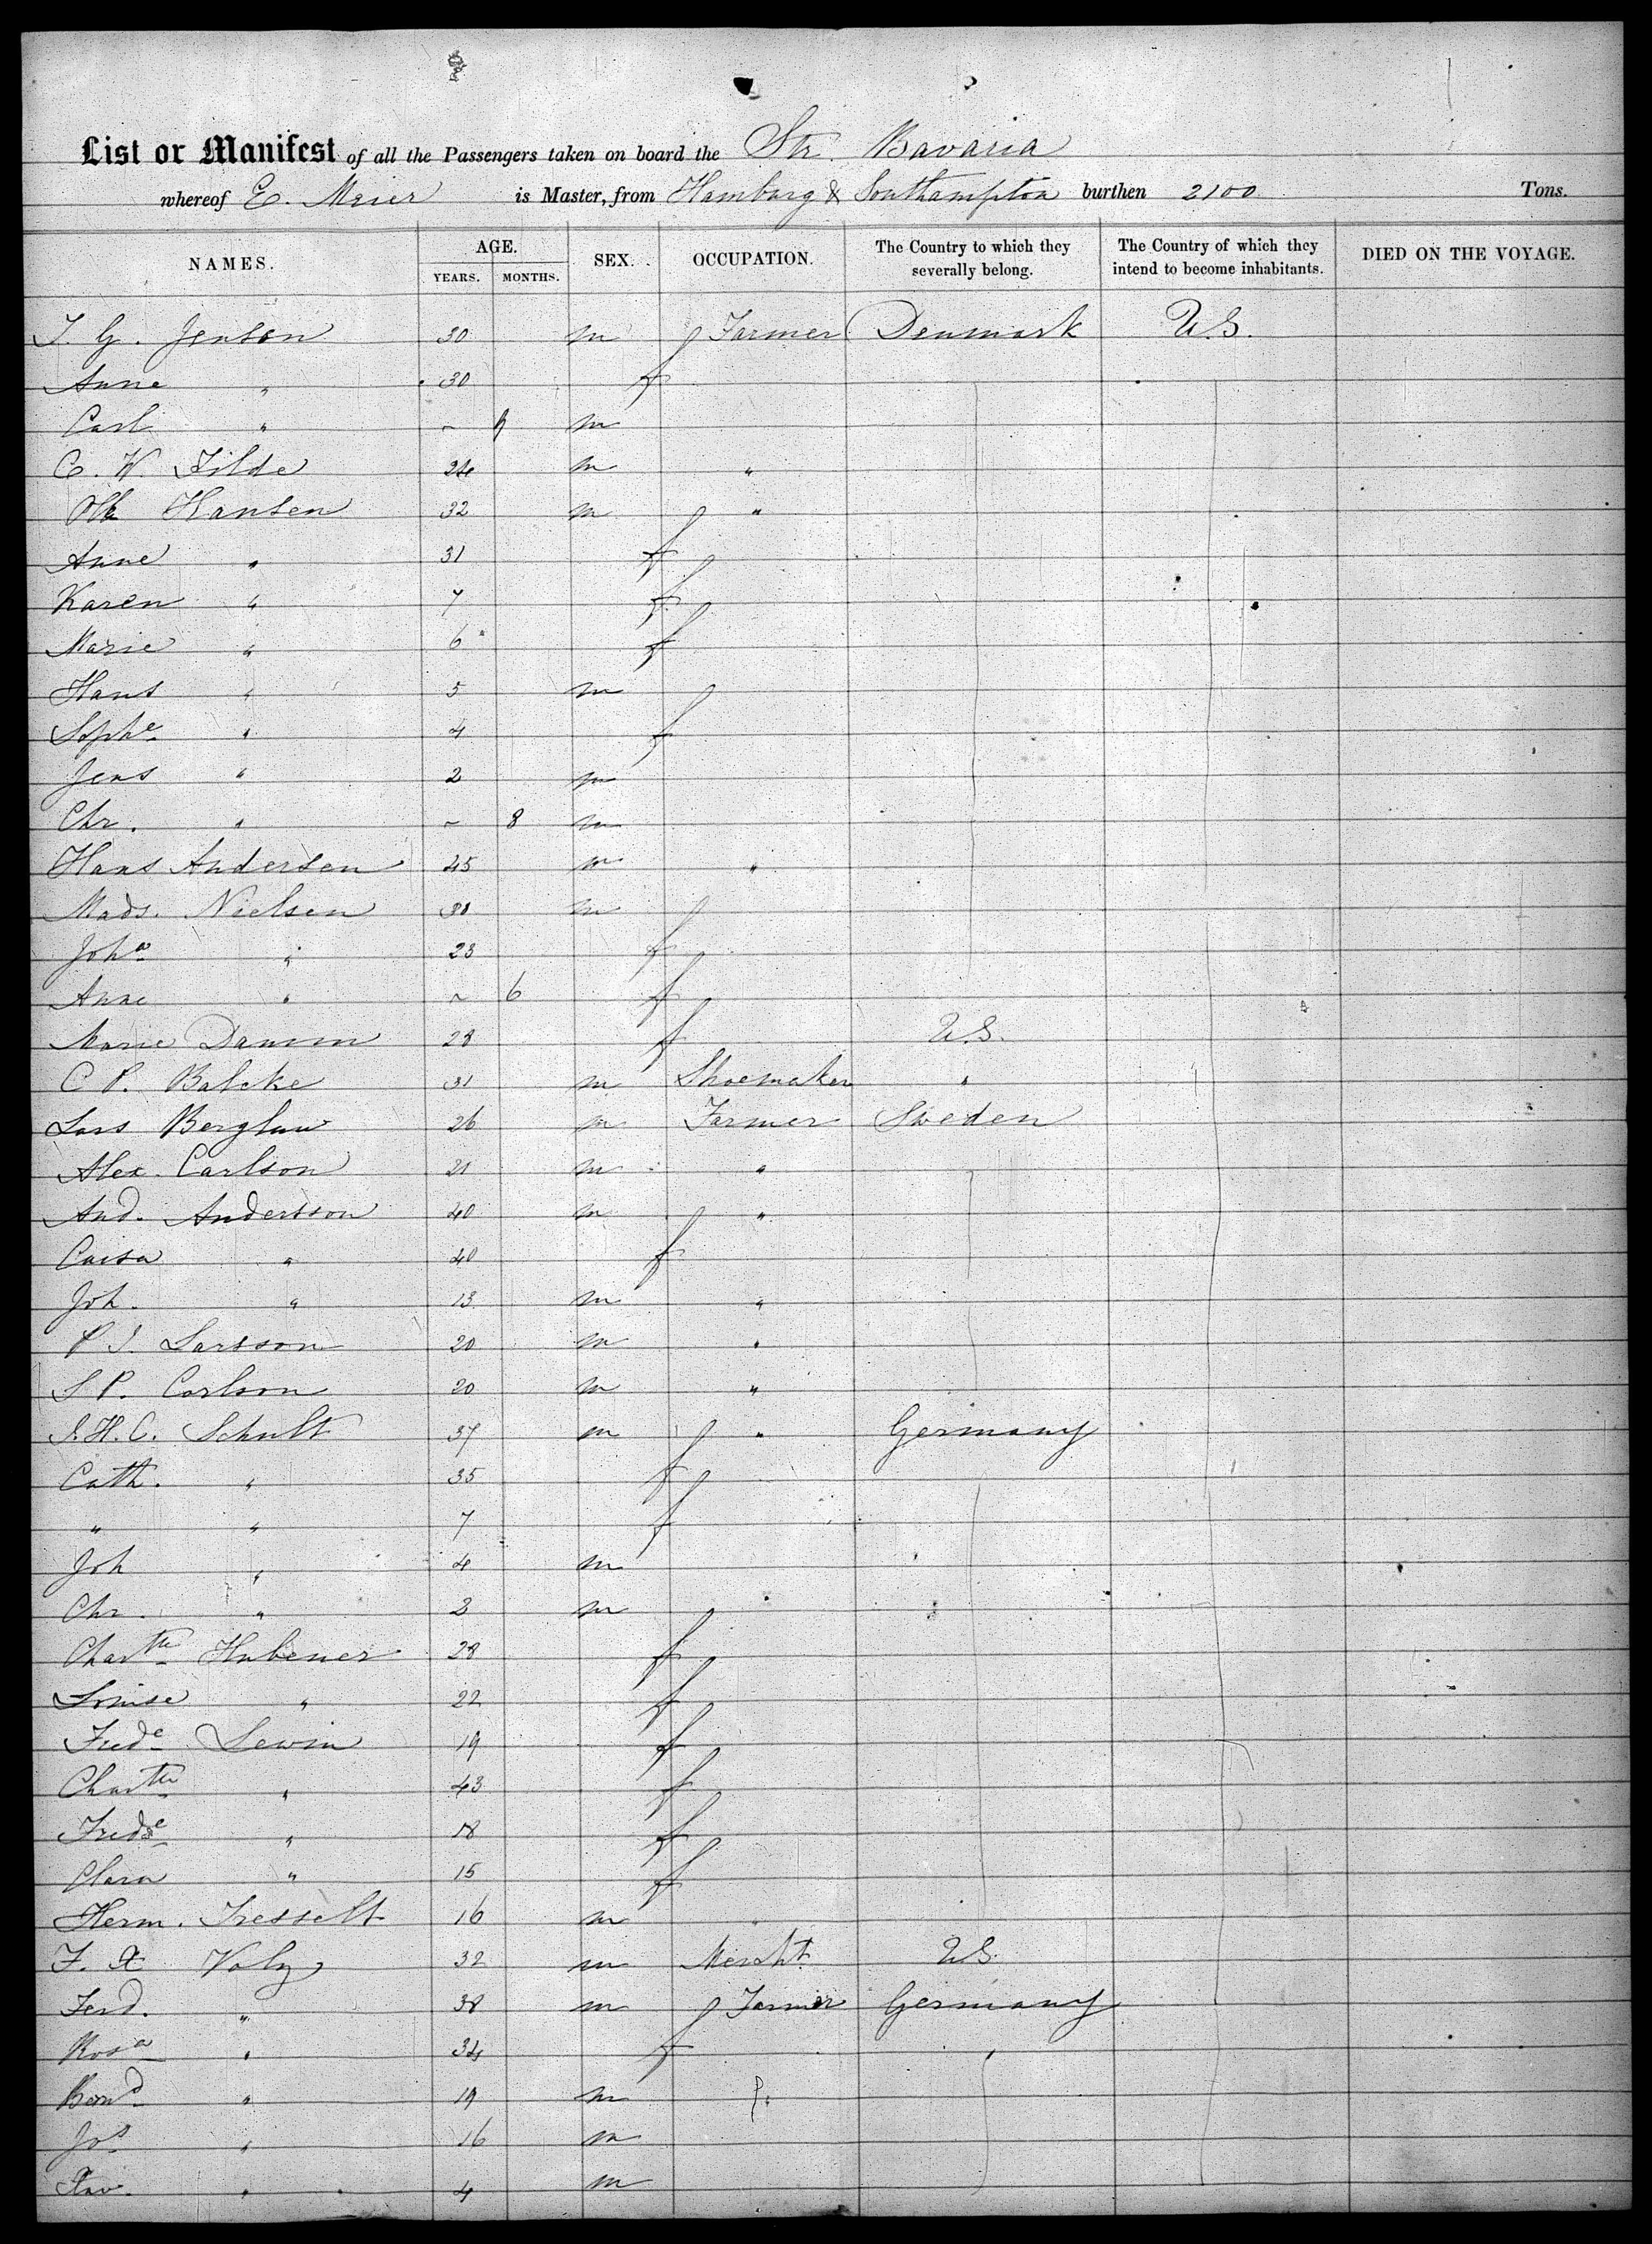 List or Manifest of all the Passengers taken on board the Str. Bavaria
whereof E. Meier is Master, from Hamburg & Southampton burthen 2100 Tons.
NAMES. AGE. SEX. OCCUPATION. The Country to which they severally belong. The Country of which they intend to become inhabitants. DIED ON THE VOYAGE.
YEARS. MONTHS.
J. G. Jenson 30 m Farmer Denmark U.S.
Anne " 30 f
Carl " ~ 9 m
C. W. Tilde 24 m "
Ole Hansen 32 m "
Anne " 31 f
Karen " 7 f
Marie " 6 f
Hans " 5 m
Sophe " 4 f
Jens " 2 m
Chr. " ~ 8 m
Hans Andersen 45 m "
Mads. Nielsen 30 m
Joha " 23 f
Anne " ~ 6 f
Marie Damm 28 f U.S.
C P. Balcke 31 m Shoemaker "
Lars 26 m Farmer Sweden
Alex. Carlson 21 m "
And. Andersson 40 m "
Caisa " 40 f
Joh. " 13 m "
P J. Larsson 20 m "
S P. Carlson 20 m "
J. H. C. Schult 37 m " Germany
Cath. " 35 f
" " 7 f
Joh " 4 m
Chr. " 2 m
Chartte Hubener 28 f
Louise " 22 f
Frede Lewin 19 f
Chartte " 43 f
Fredse " 18 f
Clara " 15 f
Herm. Tresselt 16 m "
F. X Volz 32 m Mercht. U.S.
Ferd. " 38 m Farmer Germany
Rosa " 34 f "
Bernd " 19 m
Jos " 16 m
Xav. " 4 m